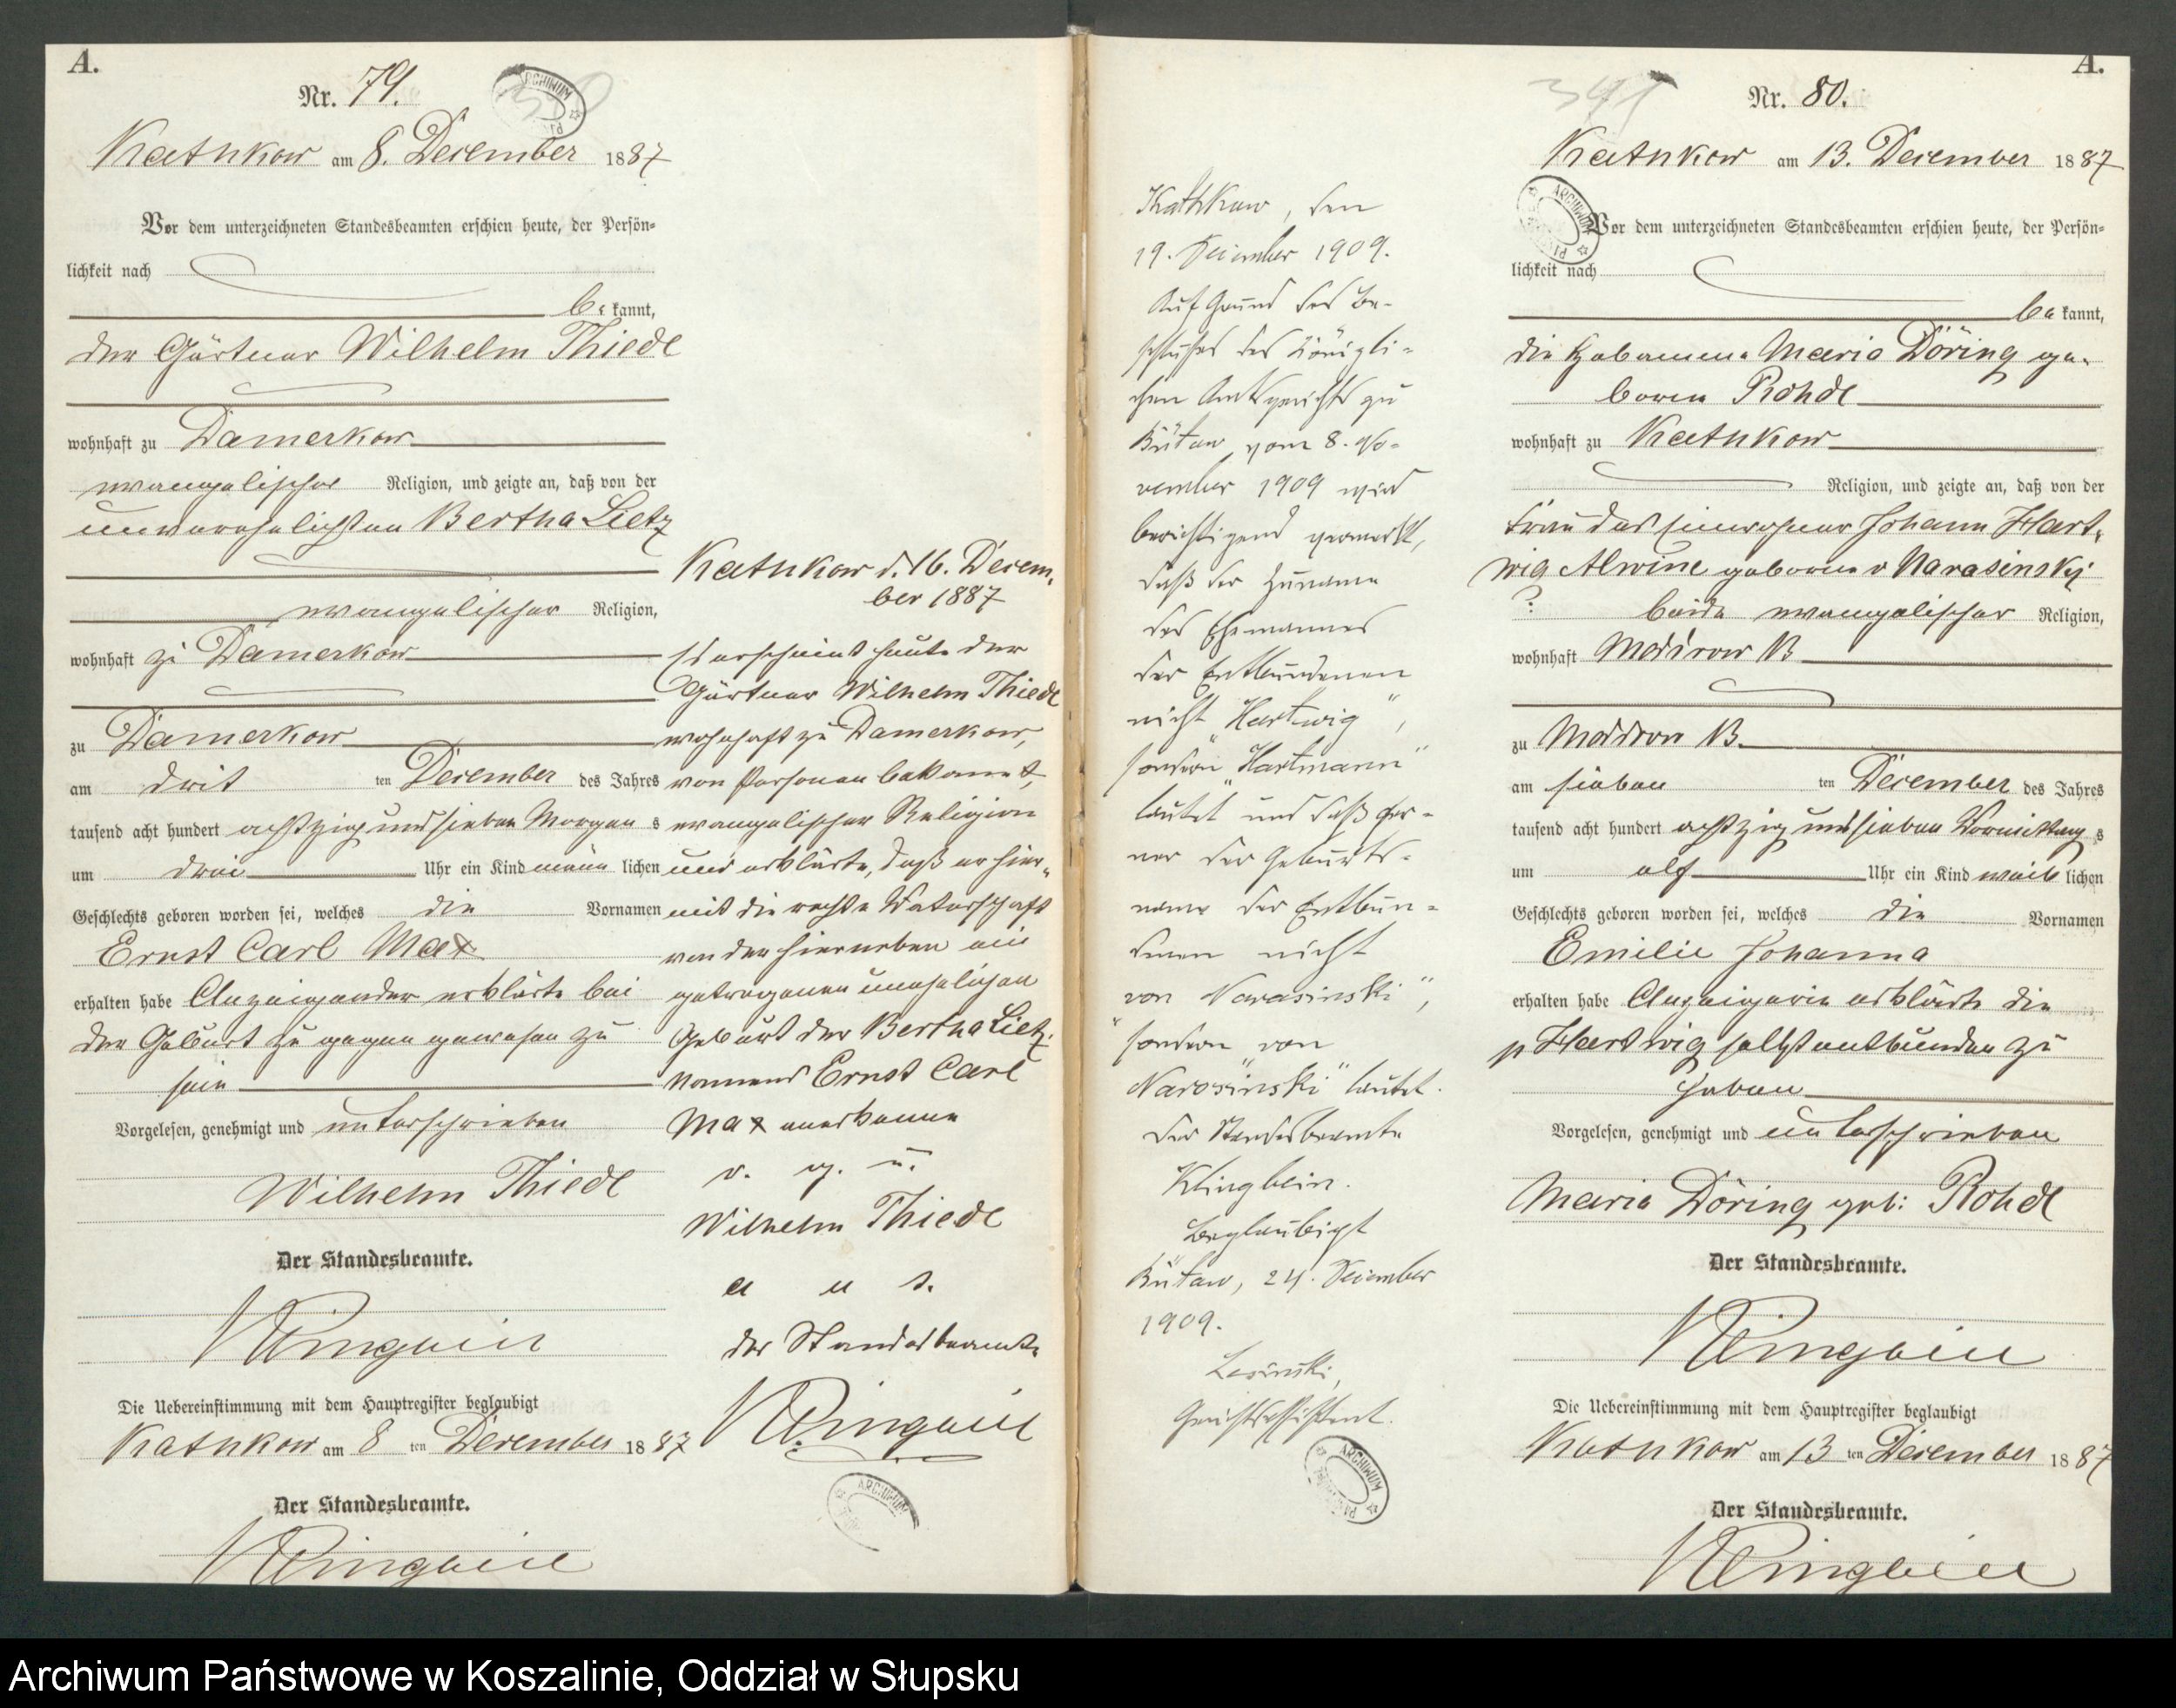 A.
Nr. 79.
Kathkow am 8. December 1887
Vor dem unterzeichneten Standesbeamten erschien heute, der Persön-
lichkeit nach
be kannt,
der Gärtner Wilhelm Thiede
wohnhaft zu Damerkow
evangelischer Religion, und zeigte an, daß von der
unverehelichten Bertha Lietz
evangelischer Religion,
wohnhaft zu Damerkow
zu Damerkow
am drit ten December des Jahres
tausend acht hundert achtzig und sieben Morgen s
um drei Uhr ein Kind männ lichen
Geschlechts geboren worden sei, welches die Vornamen
Ernst Carl Max
erhalten habe Anzeigender erklärte bei
der Geburt zu gegen gewesen zu
sein
Vorgelesen, genehmigt und unterschrieben
Wilhelm Thiede
Der Standesbeamte.
Klingbeil
Die Uebereinstimmung mit dem Hauptregister beglaubigt
Kathkow am 8 ten December 1887
Der Standesbeamte.
Klingbeil
Kathkow d. 16. Decem-
ber 1887
Es erscheint heute der
Gärtner Wilhelm Thiede
wohnhaft zu Damerkow,
von Person bekannt,
evangelischer Religion
und erklärte, daß er hier-
mit die rechte Vaterschaft
von der hierneben ein
getragenen unehelichen
Geburt der Bertha Lietz.
Namens Ernst Carl
Max anerkenne
v. g. u.
Wilhelm Thiede
a u s.
der Standesbeamte
Klingbeil
Kathkow, den
19. Dezember 1909.
Auf Grund des Be-
schlusses des Königli-
chen Amtsgerichts zu
Bütow vom 8. No-
vember 1909 wird
berichtigend vermerkt,
daß der Zuname
des Ehemannes
der Entbundenen
nicht "Hartwig",
sondern "Hartmann"
lautet und daß fer-
ner der Geburts-
name der Entbun-
denen nicht
von Narasinski",
"sondern von
Narosinski" lautet.
Der Standesbeamte
Klingbein.
Beglaubigt
Bütow, 24. Dezember
1909.
Gerichtsassistent.
A.
Nr. 80.
Kathkow am 13. December 1887
Vor dem unterzeichneten Standesbeamten erschien heute, der Persön-
lichkeit nach
be kannt,
die Hebamme Maria Döring ge-
boren Rohde
wohnhaft zu Kathkow
Religion, und zeigte an, daß von der
Frau des Einwohner Johann Hart-
wig Alwine geborene v Narasinski
? beide evangelischer Religion,
wohnhaft Moddrow B
zu Moddrow B.
am sieben ten December des Jahres
tausend acht hundert achtzig und sieben Vormittag s
um elf Uhr ein Kind weib lichen
Geschlechts geboren worden sei, welches die Vornamen
Emilie Johanna
erhalten habe Anzeigerin erklärte die
p Hartwig selbst entbunden zu
haben
Vorgelesen, genehmigt und unterschrieben
Maria Döring geb: Rohde
Der Standesbeamte.
Klingbeil
Die Uebereinstimmung mit dem Hauptregister beglaubigt
Kathkow am 13 ten December 1887
Der Standesbeamte.
Klingbeil
Archiwum Państwowe w Koszalinie, Oddział w Słupsku